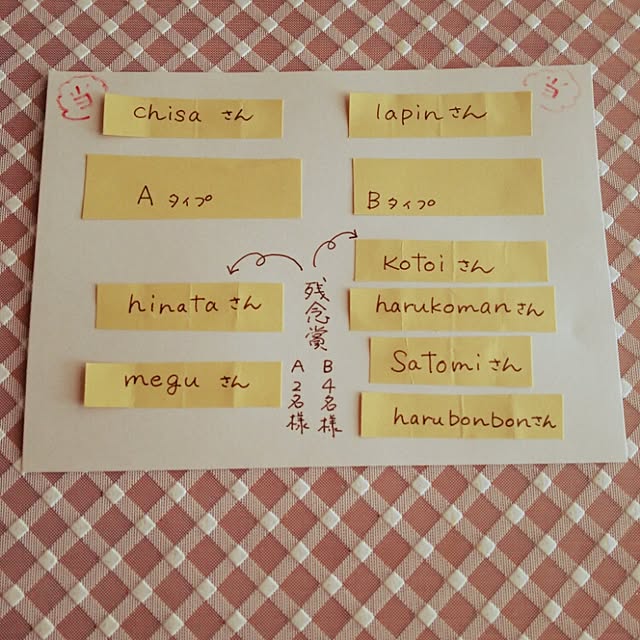 当
chisa さん
Aタイプ
当
lapin さん
Bタイプ
残念賞
A2名様
B4名様
hinata さん
megu さん
kotoi さん
harukoman さん
Satomi さん
harubonbon さん